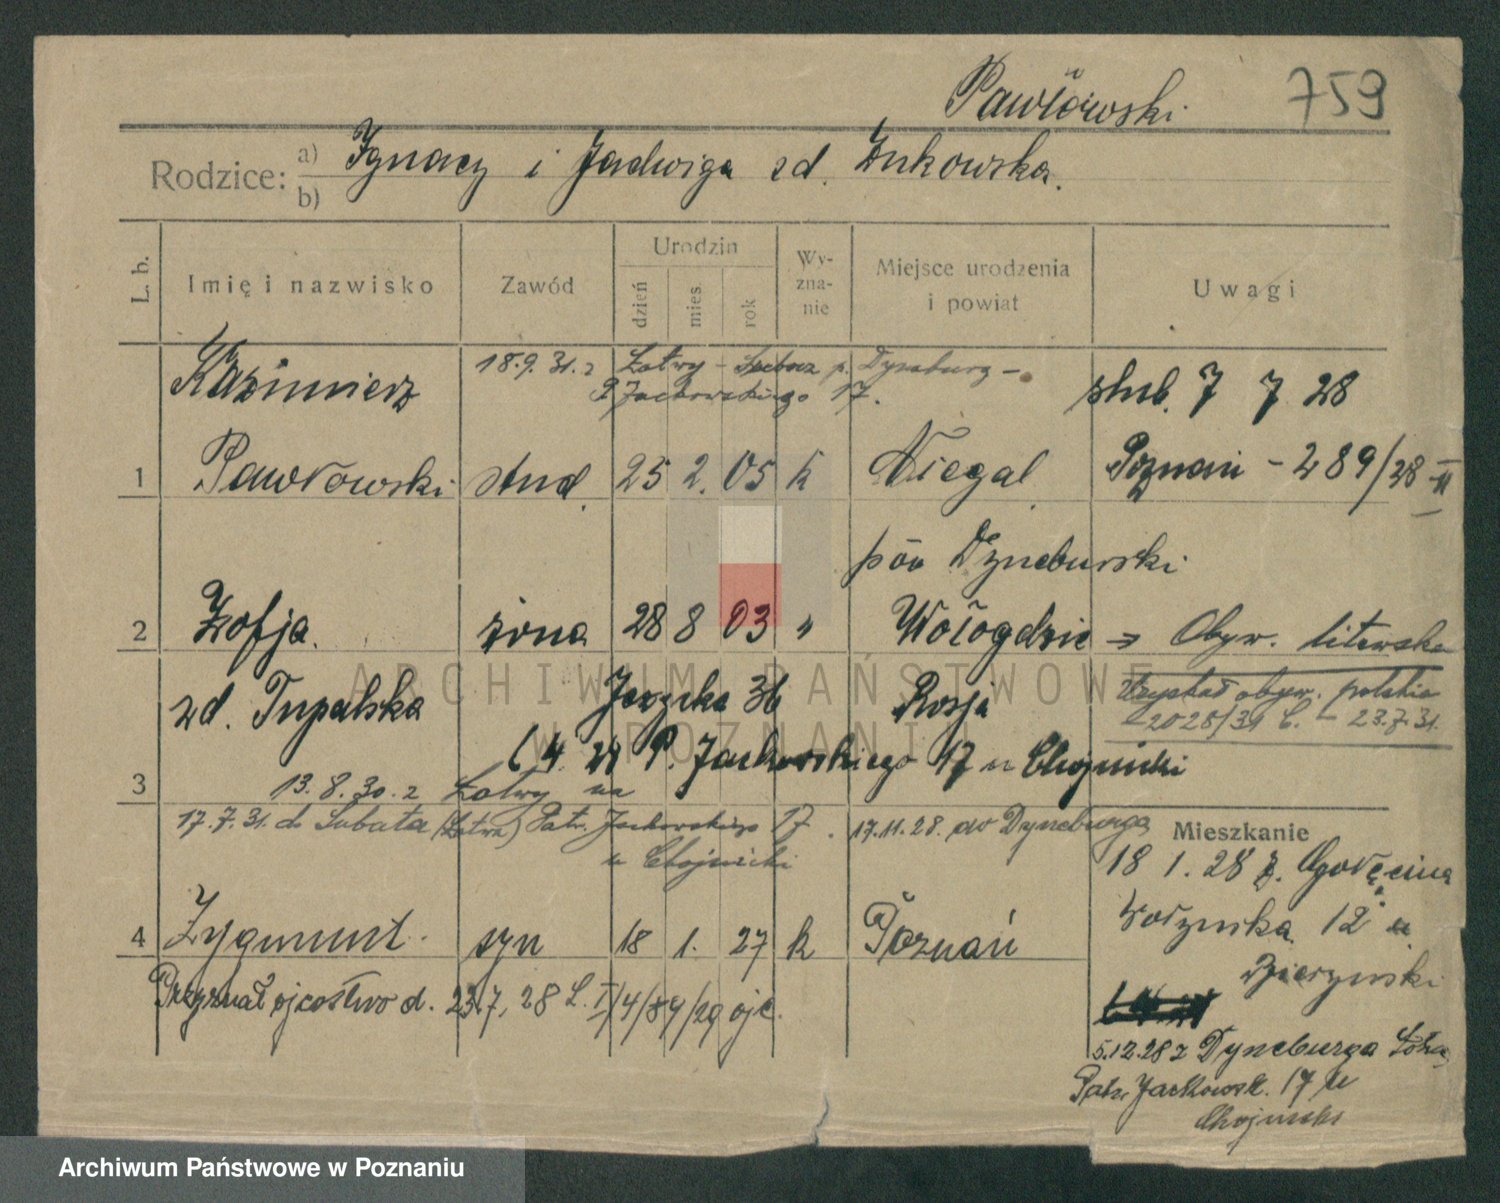 Pawłowski 759
Rodzice: a) Ignacy i Jadwiga zd. Żukowska.
b)
L. b. Imię i nazwisko Zawód Urodzin dzień mies. rok Wy-zna-nie Miejsce urodzenia i powiat Uwagi
18.9.31. z Łotwy - p. Dyneburg -
Kazimierz P. Jackowskiego 17. ślub. 7 7 28
1 Pawłowski stud. 25 2. 05 k Niegal Poznań - 289/28 - II
pow Dyneburski
2 Zofja. żona 28 8 03 " Wołogdzie Obyw. litewska
zd. Tupalska Jeżycka 36 Rosja Uzyskał obyw. polskie
- 2028/31 - 23.7.31.
4. 29 P. Jackowskiego 17 u Chojnicki
3 13.8.30. z Łotwy na
17.7.31. do Subata (Łotwa) Patr. Jackowskiego 17. 17.11.28. do Dyneburga
u Chojnicki
Mieszkanie
18 1. 28 z. Ogoręcina
12 u
4 Zygmunt. syn 18 1. 27 k Poznań
Dzierzynski
Przyznał ojcostwo d. 23.7, 28 L. I/4/89/29 ojc.
5.12.28 z Dyneburga Łotwa
Patr. Jackowsk. 17 u
Chojnicki
ARCHIWUM PAŃSTWOWE
W POZNANIU
Archiwum Państwowe w Poznaniu